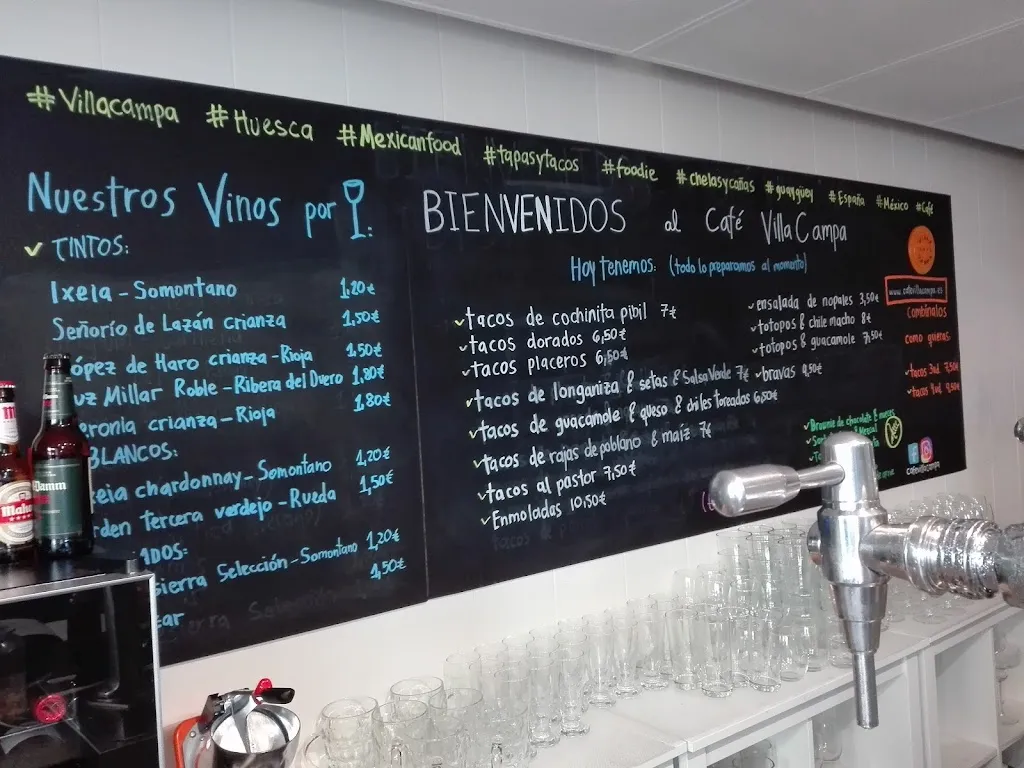 #Villacampa #Huesca #Mexicanfood #tapasytacos #foodie #chelasycañas #guaygüey #España #México #Café
Nuestros Vinos por :
✓ TINTOS:
Ixeia - Somontano 1,20€
Señorío de Lazán crianza 1,50€
ópez de Haro crianza - Rioja 1,50€
uz Millar Roble - Ribera del Duero 1,80€
eronia crianza - Rioja 1,80€
BLANCOS:
xeia chardonnay - Somontano 1,20€
rden Tercera verdejo - Rueda 1,50€
ADOS:
sierra Selección - Somontano 1,20€
ar 1,50€
BIENVENIDOS al Café VillaCampa
Hoy tenemos: (todo lo preparamos al momento)
✓tacos de cochinita pibil 7€
✓tacos dorados 6,50€
✓tacos placeros 6,50€
✓tacos de longaniza & setas & Salsa Verde 7€
✓tacos de guacamole & queso & chiles toreados 6,50€
✓tacos de rajas de poblano & maíz 7€
✓tacos al pastor 7,50€
✓Enmoladas 10,50€
✓ensalada de nopales 3,50€
✓totopos & chile macho 8€
✓totopos & guacamole 7,50€
✓bravas 4,50€
www.cafevillacampa.es
Combínalos
como quieras:
✓tacos 3ud 7,50€
✓tacos 4ud 9,50€
✓Brownie de chocolate & nueces
cafevillacampa
Damm
Maho